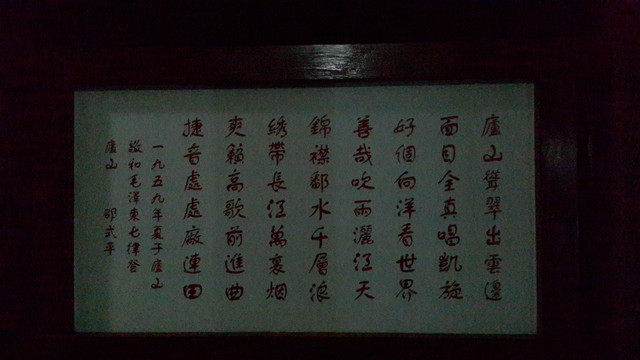 廬山聳翠出雲邊
面目全真唱凱旋
好個向洋看世界
善哉吹雨灑江天
錦襟鄱水千層浪
綉帶長江萬裏烟
爽籟高歌前進曲
捷音處處廠連田
一九五九年夏于廬山
敬和毛澤東七律登
廬山 邵式平